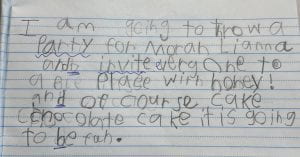 I am going to trow a
party for Morah Lianna
and invite every One to
a place with honey!
and of course cake
Chocolate cake it is going
to be fun.